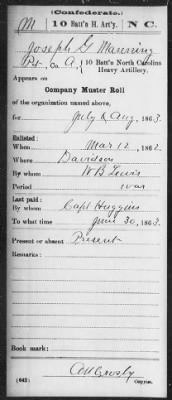 (Confederate.)
M 10 Batt'n H. Art'y. N C.
Joseph G Manning
Pvt, Co. A, 10 Batt'n North Carolina
Heavy Artillery.
Appears on
Company Muster Roll
of the organization named above,
for July & Aug, 1863.
Enlisted:
When Mar 12, 1862.
Where Davidson
By whom W B Lewis
Period war
Last paid:
By whom Capt Huggins
To what time June 30, 1863.
Present or absent Present
Remarks:
Book mark:
(642) Copyist.